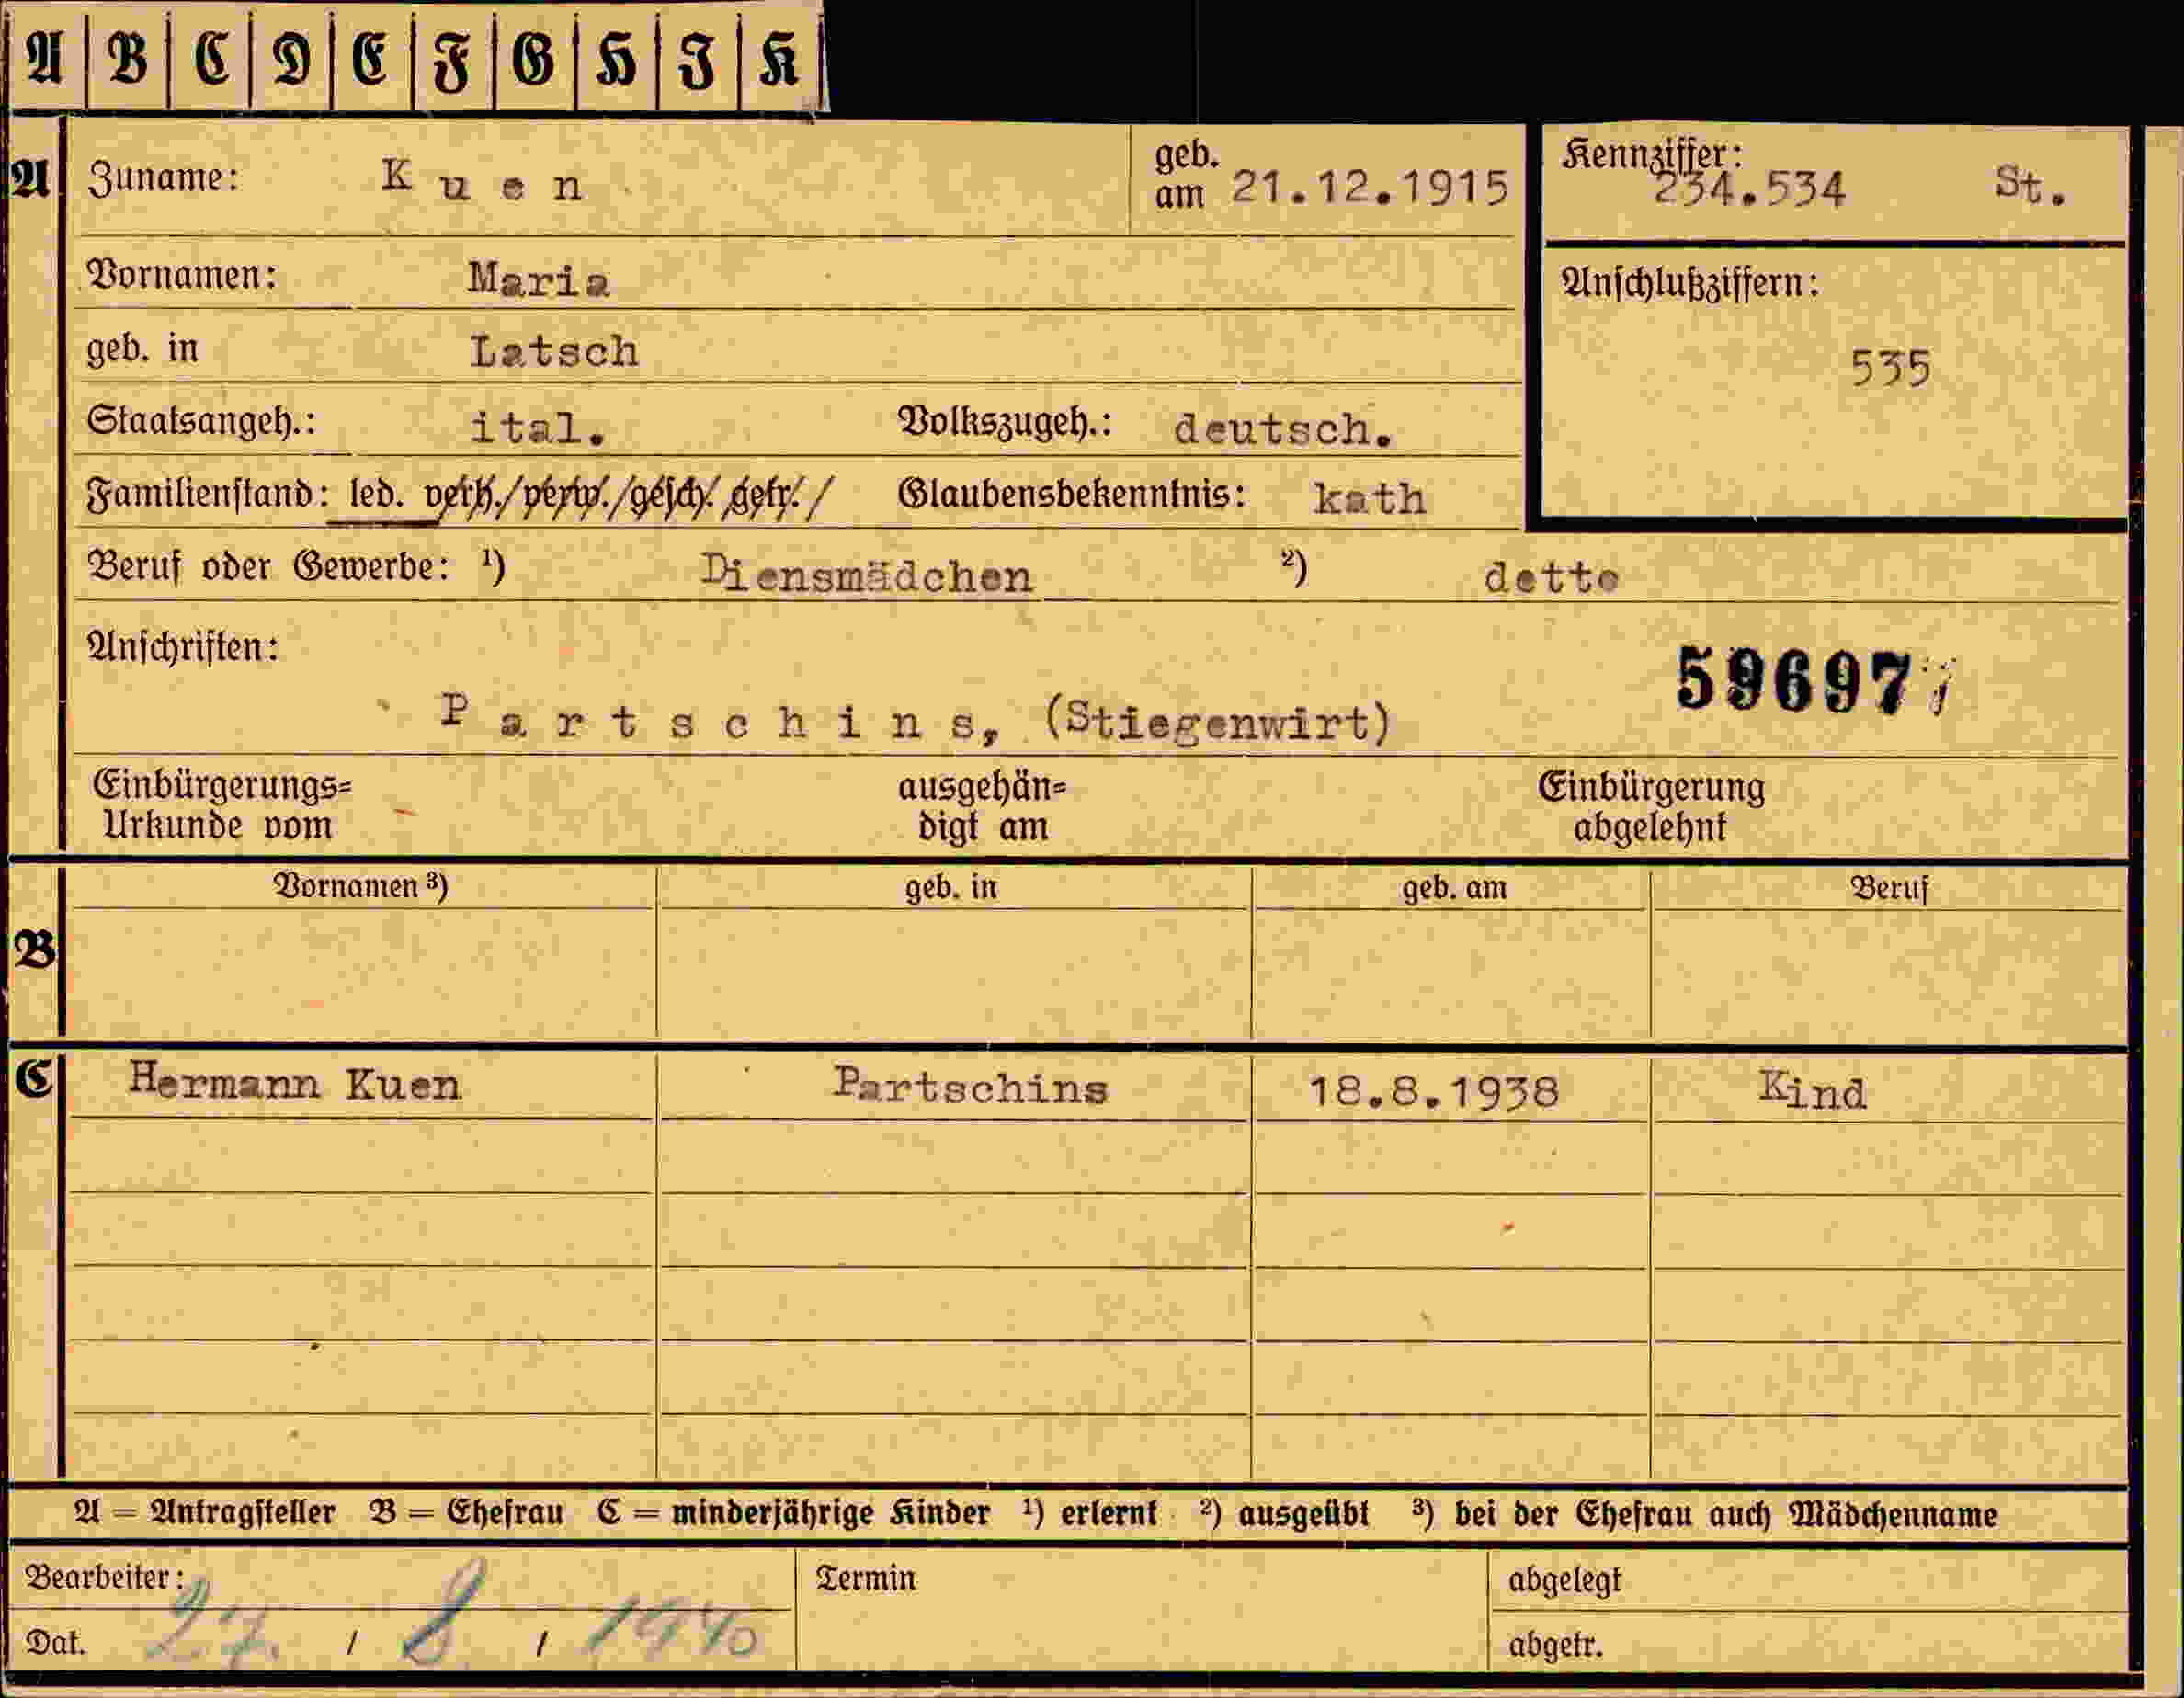 A B C D E F G H I K
A Zuname: Kuen geb. am 21.12.1915 Kennziffer: 234.534 St.
Vornamen: Maria Anschlußziffern:
geb. in Latsch 535
Staatsangeh.: ital. Volkszugeh.: deutsch.
Familienstand: led. verh./verw./gesch. getr./ Glaubensbekenntnis: kath
Beruf oder Gewerbe: ¹) Diensmädchen ²) detto
Anschriften: 59697
Partschins, (Stiegenwirt)
Einbürgerungs= ausgehän= Einbürgerung
Urkunde vom digt am abgelehnt
Vornamen ³) geb. in geb. am Beruf
B
C Hermann Kuen Partschins 18.8.1938 Kind
A = Antragsteller B = Ehefrau C = minderjährige Kinder ¹) erlernt ²) ausgeübt ³) bei der Ehefrau auch Mädchenname
Bearbeiter: Termin abgelegt
Dat. 27. / 8 / 1940 abgetr.